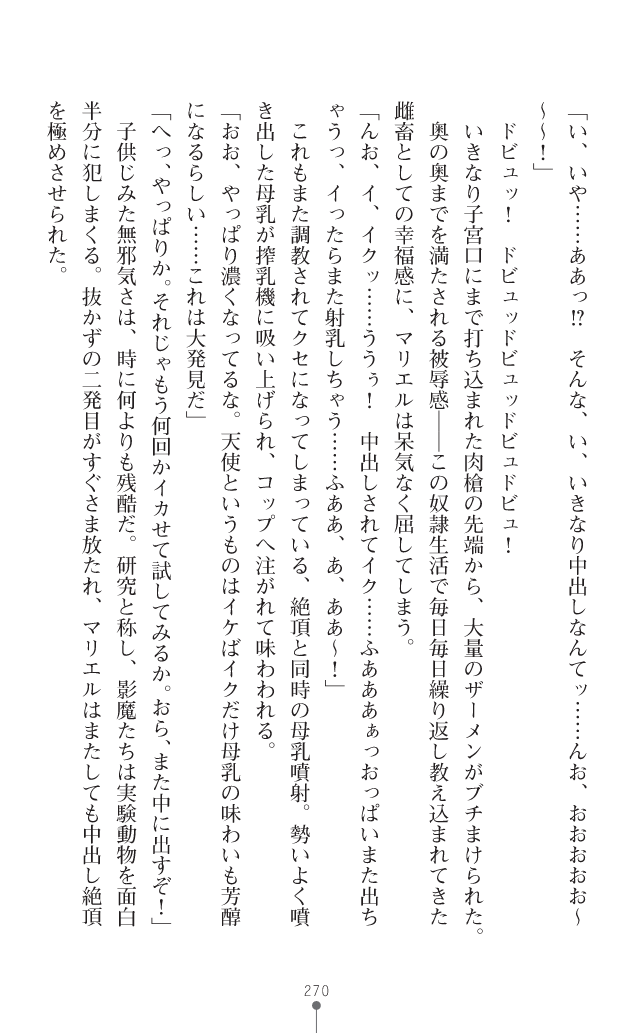 「い、いや……ああっ!?　そんな、い、いきなり中出しなんてッ……んお、おおおおお～
～～！」
　ドビュッ！　ドビュッドビュッドビュドビュ！
　いきなり子宮口にまで打ち込まれた肉槍の先端から、大量のザーメンがブチまけられた。
　奥の奥までを満たされる被辱感――この奴隷生活で毎日毎日繰り返し教え込まれてきた
雌畜としての幸福感に、マリエルは呆気なく屈してしまう。
「んお、イ、イクッ……ううぅ！　中出しされてイク……ふあああぁっおっぱいまた出ち
ゃうっ、イったらまた射乳しちゃう……ふああ、あ、ああ～！」
　これもまた調教されてクセになってしまっている、絶頂と同時の母乳噴射。勢いよく噴
き出した母乳が搾乳機に吸い上げられ、コップへ注がれて味わわれる。
「おお、やっぱり濃くなってるな。天使というものはイケばイクだけ母乳の味わいも芳醇
になるらしい……これは大発見だ」
「へっ、やっぱりか。それじゃもう何回かイカせて試してみるか。おら、また中に出すぞ！」
　子供じみた無邪気さは、時に何よりも残酷だ。研究と称し、影魔たちは実験動物を面白
半分に犯しまくる。抜かずの二発目がすぐさま放たれ、マリエルはまたしても中出し絶頂
を極めさせられた。
270